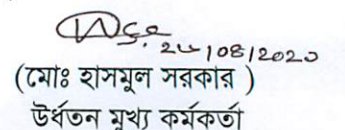 ২৫/০৪/২০২০
(মোঃ হাসমুল সরকার )
উর্ধতন মুখ্য কর্মকর্তা